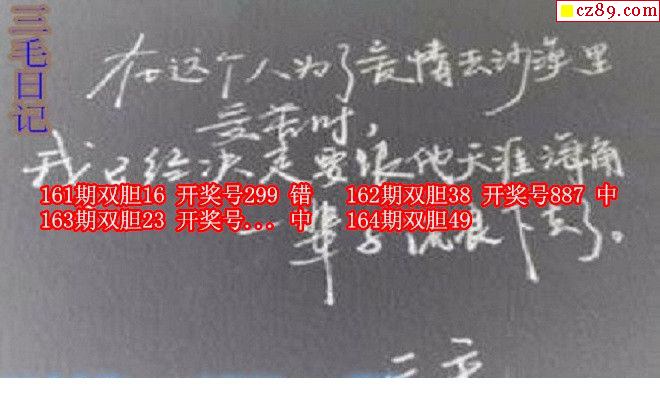 cz89.com
三毛日记
在这个人为了爱情去沙漠里
受苦时,
我已经决定要跟他天涯海角
161期双胆16 开奖号299 错 162期双胆38 开奖号887 中
163期双胆23 开奖号... 中 164期双胆49
一辈子流浪下去了。
三毛